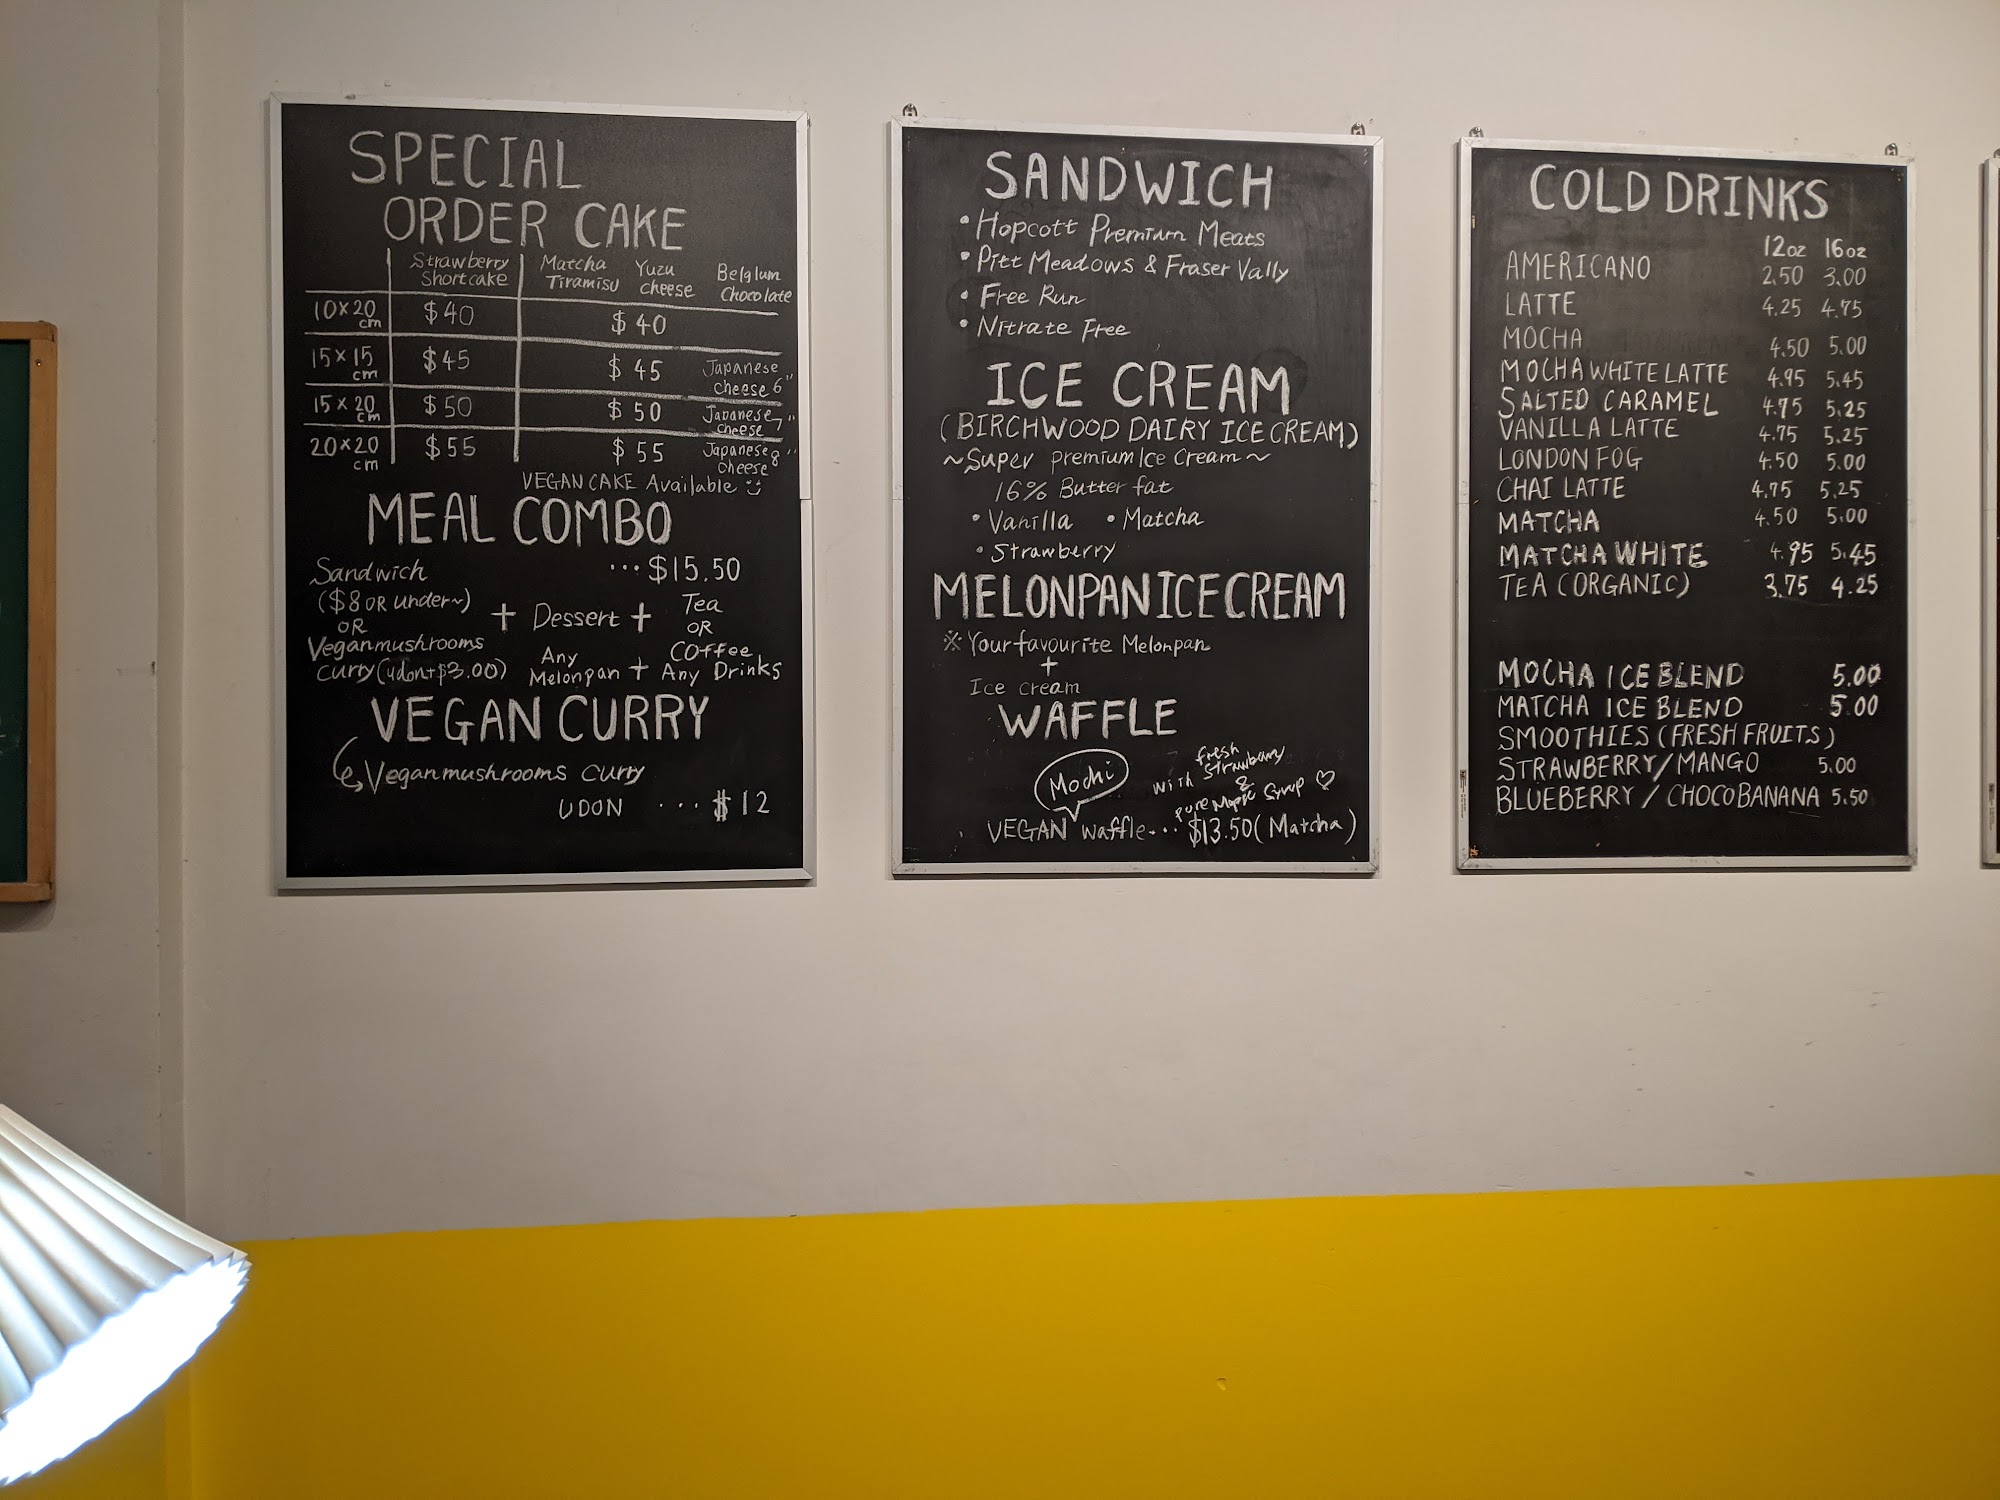 SPECIAL
ORDER CAKE
Strawberry Shortcake Matcha Tiramisu Yuzu cheese Belgium Chocolate
10×20 cm $40 $40
15×15 cm $45 $45 Japanese cheese 6"
15×20 cm $50 $50 Japanese cheese 7"
20×20 cm $55 $55 Japanese cheese 8"
VEGAN CAKE Available
MEAL COMBO
Sandwich ... $15.50
($8 OR under~) + Dessert + Tea
OR OR
Vegan mushrooms Any Coffee
Curry (udon+$3.00) Melonpan + Any Drinks
VEGAN CURRY
Vegan mushrooms curry
UDON ... $12
SANDWICH
• Hopcott Premium Meats
• Pitt Meadows & Fraser Vally
• Free Run
• Nitrate Free
ICE CREAM
(BIRCHWOOD DAIRY ICE CREAM)
~Super premium Ice Cream~
16% Butter fat
• Vanilla • Matcha
• Strawberry
MELONPAN ICE CREAM
※ Your favourite Melonpan
+
Ice cream
WAFFLE
Mochi with fresh strawberry
&
pure Maple Syrup ♡
VEGAN waffle... $13.50 (Matcha)
COLD DRINKS
12oz 16oz
AMERICANO 2.50 3.00
LATTE 4.25 4.75
MOCHA 4.50 5.00
MOCHA WHITE LATTE 4.95 5.45
SALTED CARAMEL 4.75 5.25
VANILLA LATTE 4.75 5.25
LONDON FOG 4.50 5.00
CHAI LATTE 4.75 5.25
MATCHA 4.50 5.00
MATCHA WHITE 4.95 5.45
TEA (ORGANIC) 3.75 4.25
MOCHA ICE BLEND 5.00
MATCHA ICE BLEND 5.00
SMOOTHIES (FRESH FRUITS)
STRAWBERRY/MANGO 5.00
BLUEBERRY / CHOCOBANANA 5.50